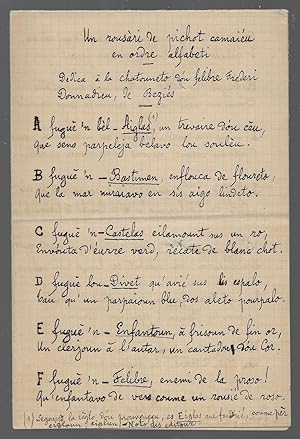 Un rousàri de pichot camaiéu
en ordre alfabeti
Dedica à la chatouneto dóu felibre Frederi
Donnadieu, de Beziés
A fuguè 'n bèl - Aiglas (1) un trevaire dóu cèu,
Que sens parpeleja belavo lou soulèu.
B fuguè 'n - Bastimen, enflouca de floureto,
Que la mar miraiavo en sis aigo lindeto.
C fuguè 'n - Castelas eilamount sus un ro,
Envouta d'éurre verd, recate de blanc chot.
D fuguè lou - Divet qu'avié sus lis espalo,
Eau qu'un parpaioun blu, dos aleto pourpalo.
E fuguè 'n - Enfantoun, à frisoun de fin or,
Un clerjoun à l'autar, un cantadou dóu Cor.
F fuguè 'n - Felibre, enemi de la proso!
Qu'enfantavo de vers coume un rousié de roso.
(1) Segound la règlo dóu prouvençau, es Eiglas que faudrié, coume pèr
eigloun, eiglun. - Noto dis editour